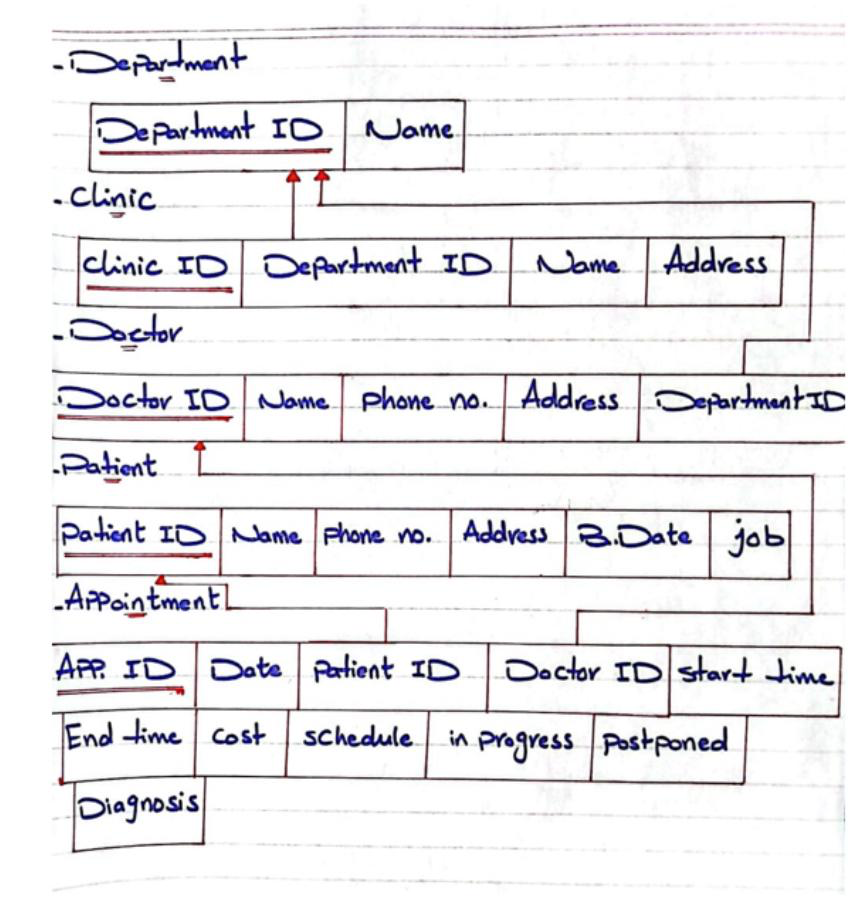 - Department
Department ID Name
- Clinic
Clinic ID Department ID Name Address
- Doctor
Doctor ID Name Phone no. Address Department ID
- Patient
Patient ID Name Phone no. Address B.Date job
- Appointment
APP. ID Date Patient ID Doctor ID start time
End time cost schedule in progress Postponed
Diagnosis